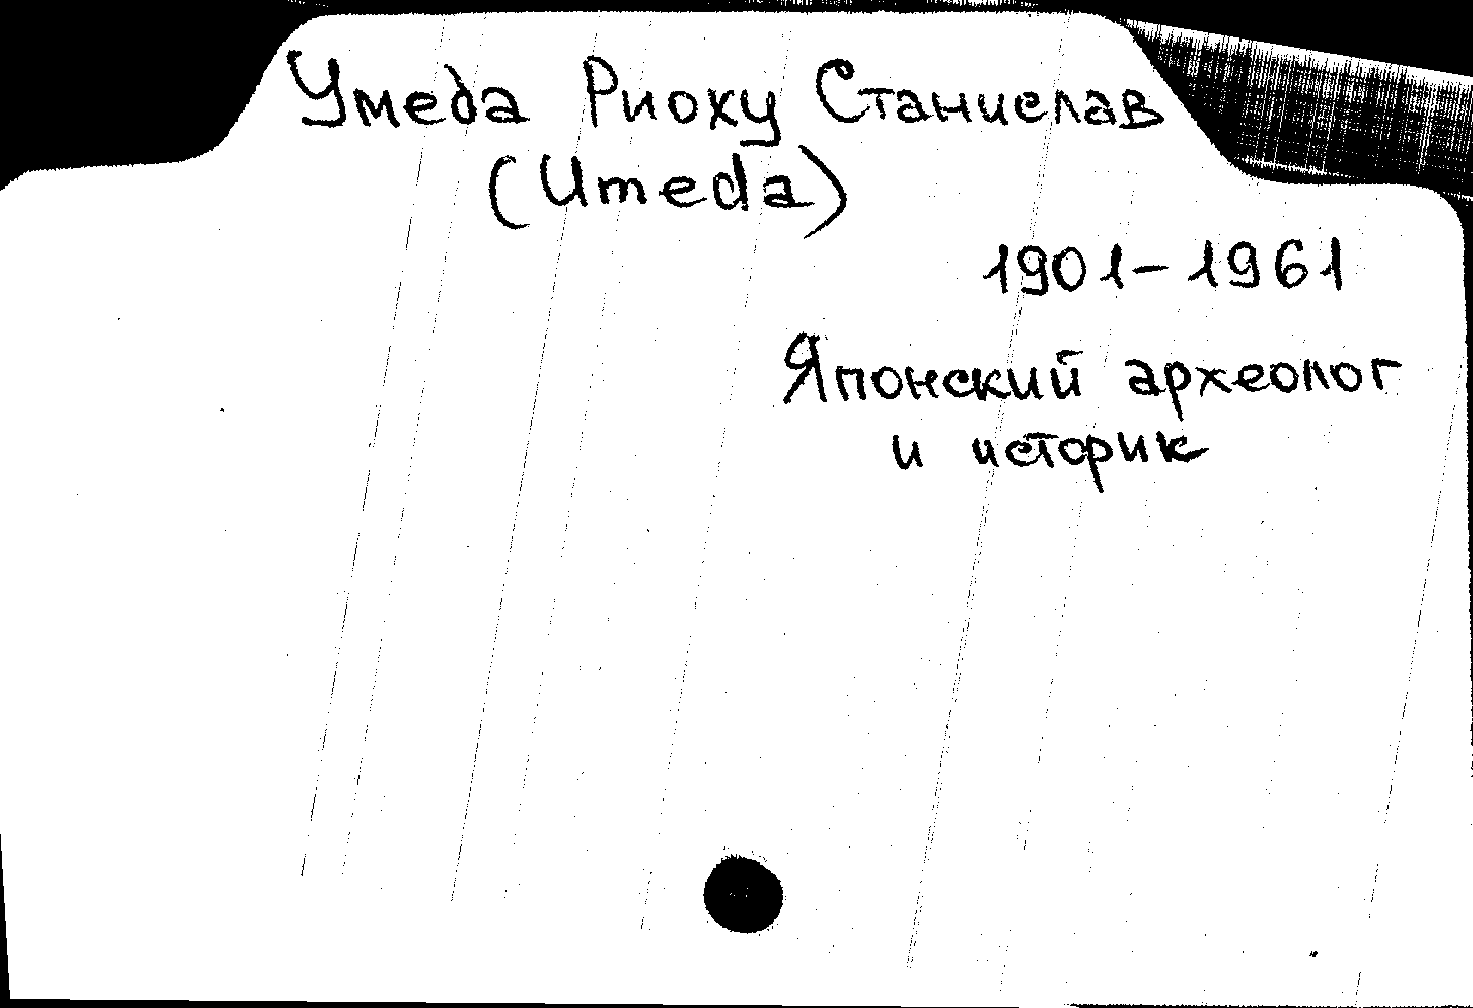 Умеда Риоху Станислав
(Umeda)
1901-1961
Японский археолог
и историк